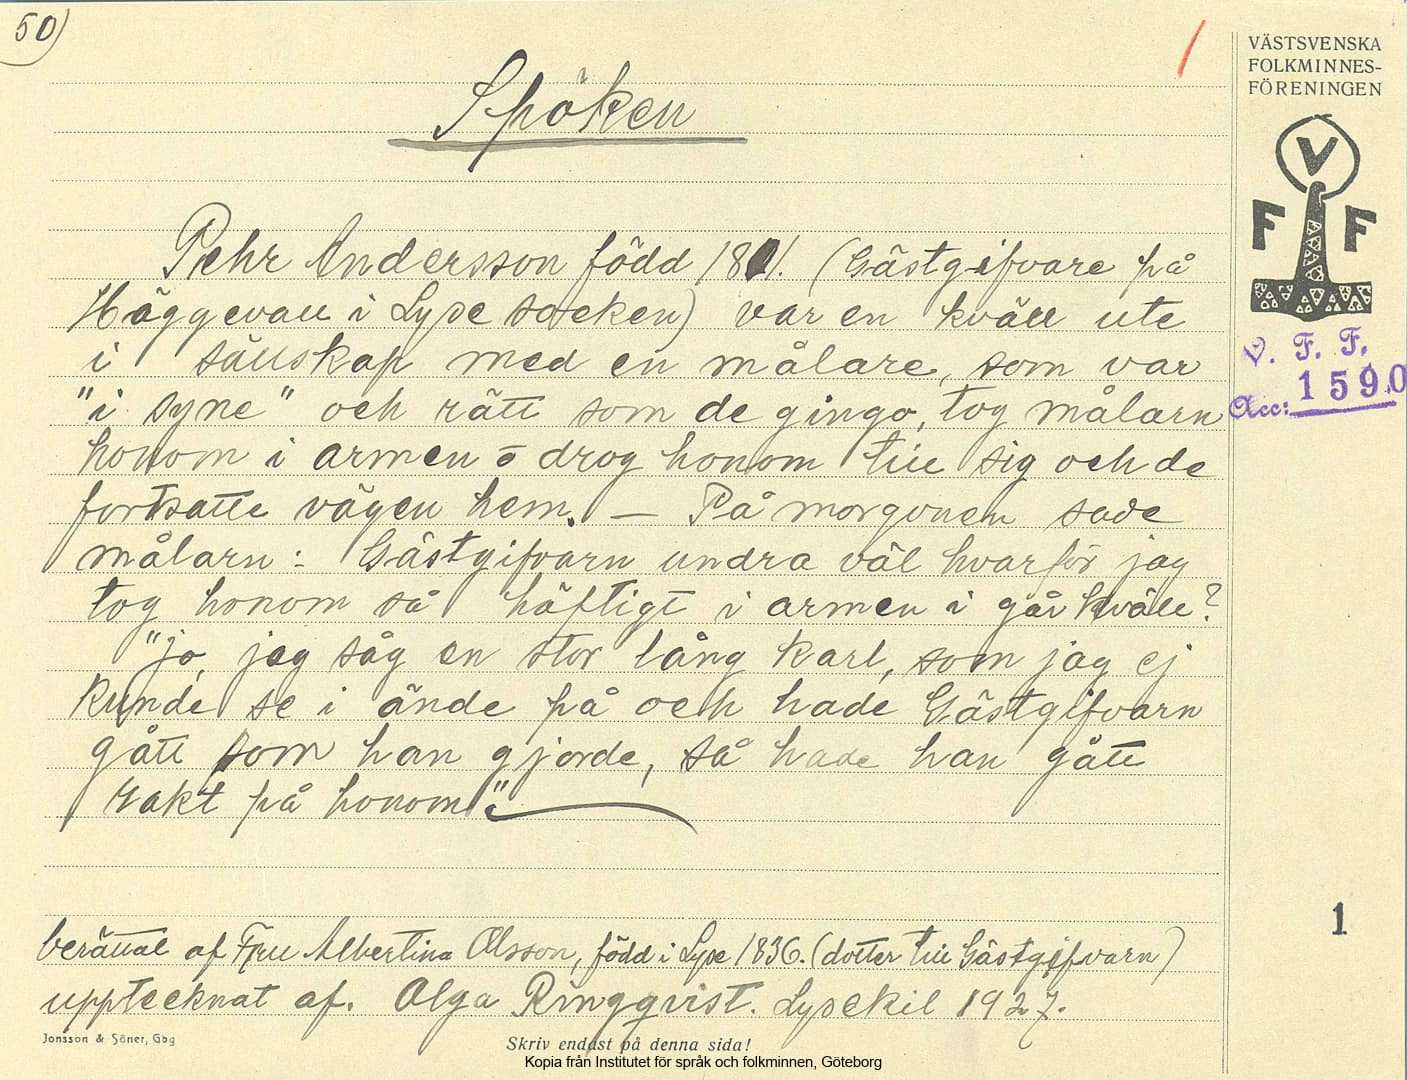 50)
Spöken
VÄSTSVENSKA
FOLKMINNES-
FÖRENINGEN
V
F F
V. F. F.
Acc: 1590
Pehr Andersson född 1801. (Gästgifvare på
Häggevall i Lyse socken) var en kväll ute
i sällskap med en målare, som var
"i syne" och rätt som de gingo, tog målarn
honom i armen o drog honom till sig och de
fortsatte vägen hem. — På morgonen sade
målarn: Gästgifvarn undra väl hvarför jag
tog honom så häftigt i armen i går kväll?
"jo, jag såg en stor lång karl, som jag ej
kunde se i ände på och hade Gästgifvarn
gått som han gjorde, så hade han gått
rakt på honom."
1
berättat af Fru Albertina Olsson, född i Lyse 1836. (dotter till Gästgifvarn)
upptecknat af. Olga Ringqvist. Lysekil 1927.
Jonsson & Söner, Gbg
Skriv endast på denna sida!
Kopia från Institutet för språk och folkminnen, Göteborg